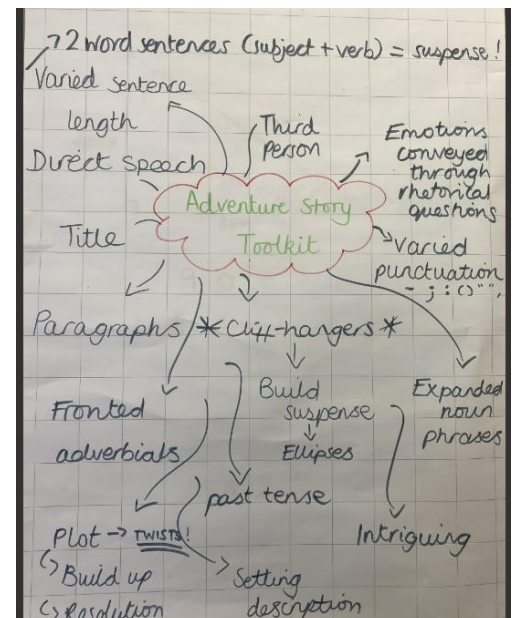 → 2 word sentences (subject + verb) = suspense!
Varied sentence
length
Third
Person
Emotions
conveyed
through
rhetorical
questions
Direct speech
Adventure Story
Toolkit
Title
Varied
punctuation
- ; : () "" ,
Paragraphs
* Cliff-hangers *
Build
suspense
↓
Ellipses
Expanded
noun
phrases
Fronted
adverbials
past tense
Intriguing
Plot → TWISTS!
↳ Build up
↳ Resolution
Setting
description